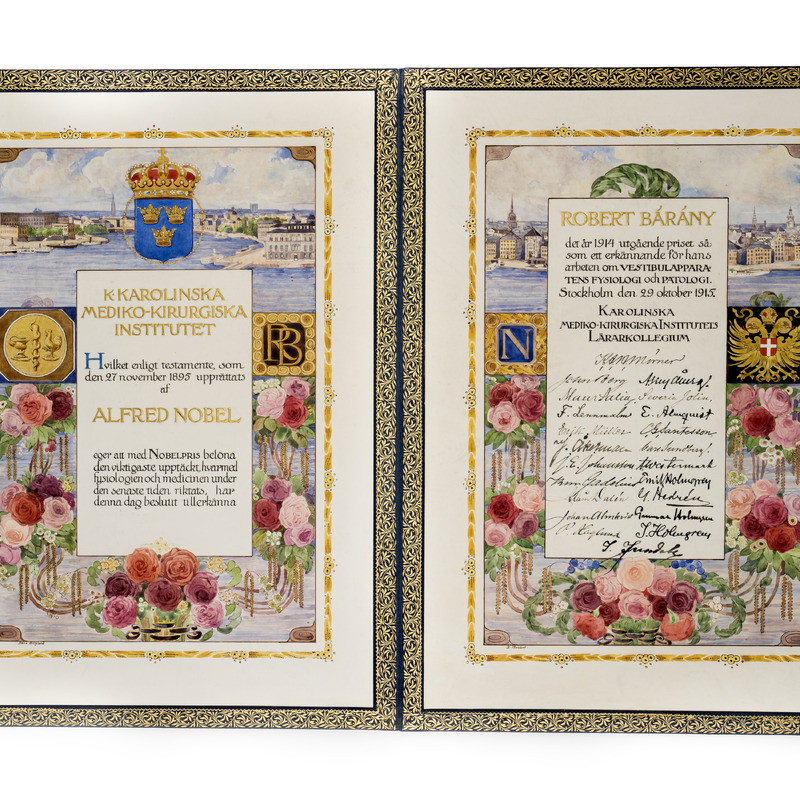 K. KAROLINSKA
MEDIKO-KIRURGISKA
INSTITUTET
Hvilket enligt testamente, som
den 27 november 1895 upprättats
af
ALFRED NOBEL
eger att med NOBELPRIS belöna
den viktigaste upptäckt, hvarmed
fysiologien och medicinen under
den senaste tiden riktats, har
denna dag beslutit tillerkänna
RB
ROBERT BÁRÁNY
det år 1914 utgående priset så-
som ett erkännande för hans
arbeten om VESTIBULAPPARA-
TENS FYSIOLOGI och PATOLOGI.
Stockholm den 29 oktober 1915.
KAROLINSKA
MEDIKO-KIRURGISKA INSTITUTETS
LÄRARKOLLEGIUM
N
Mörner
John Berg
Severin Jolin
F. Lennmalm E. Almquist
Erik Müller
J. Åkerman Carl Sundberg
J. E. Johansson Westermark
Emil Holmgren
G. Hedrén
Johan Almkvist Gunnar Holmgren
P. Haglund I. Holmgren
I. Jundell